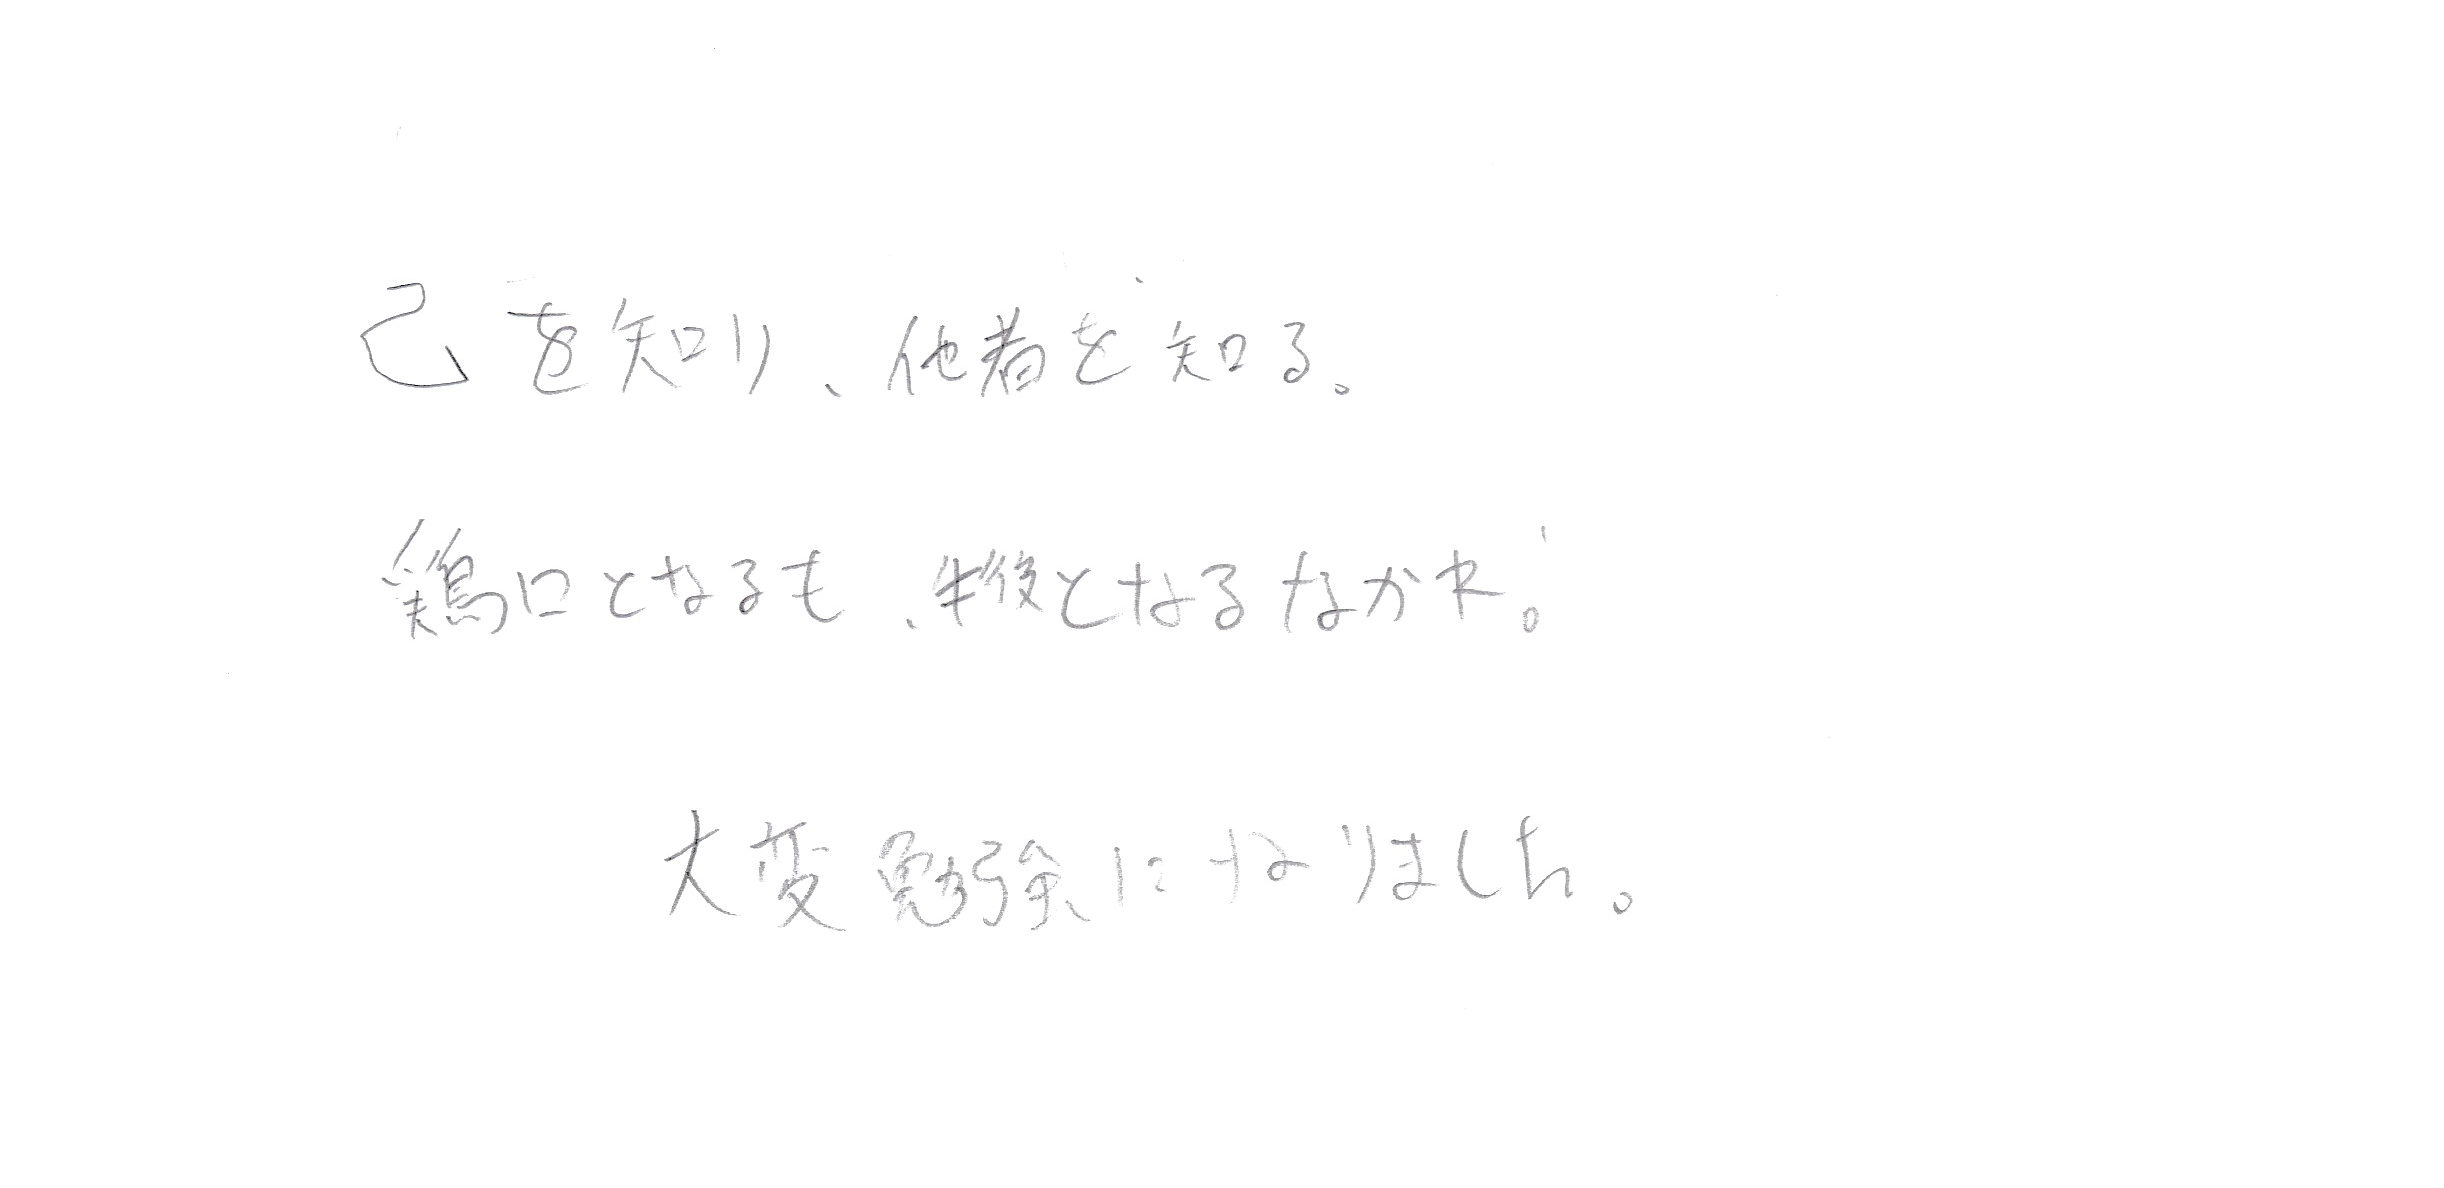 己を知り、他者を知る。
鶏口となるも、牛後となるなかれ。
大変勉強になりました。